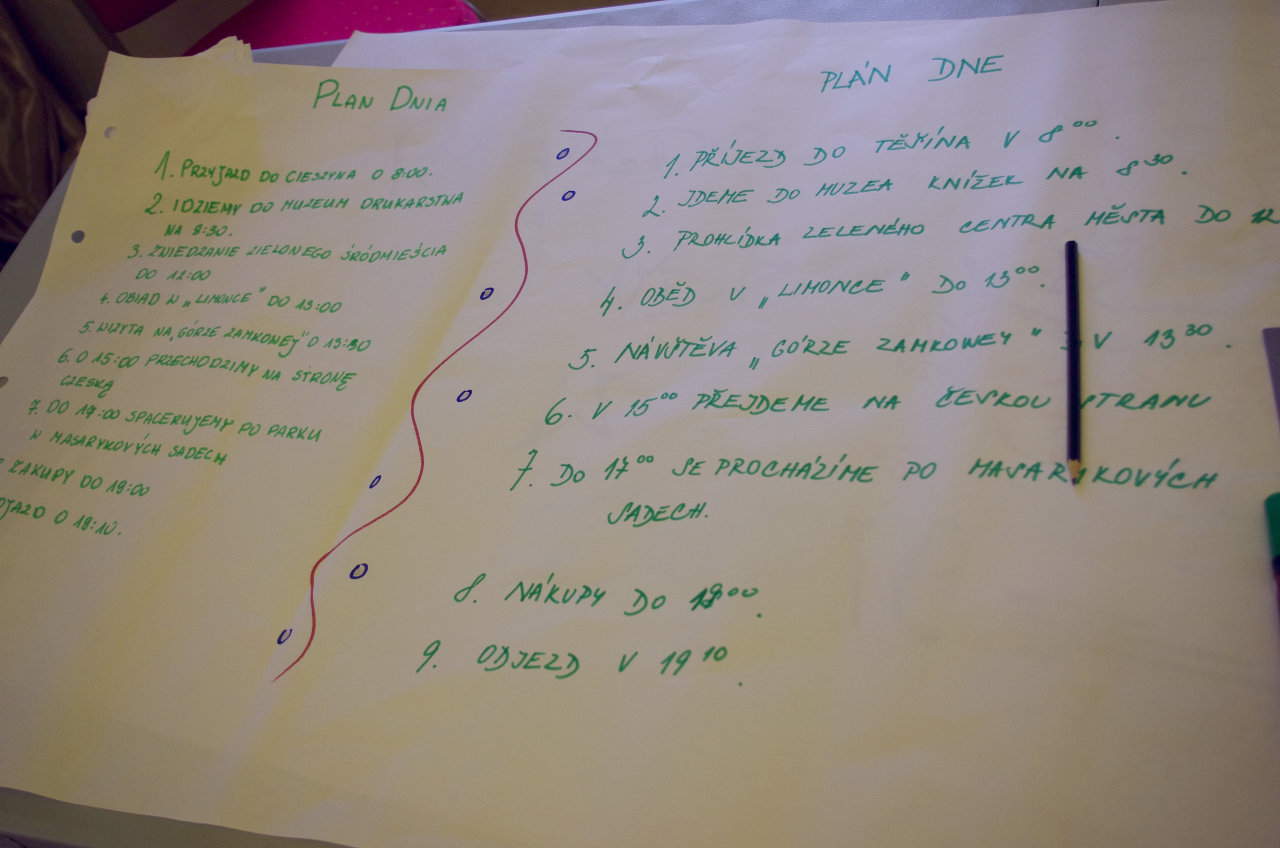 PLAN DNIA
1. PRZYJAZD DO CIESZYNA O 8:00.
2. IDZIEMY DO MUZEUM DRUKARSTWA
NA 8:30.
3. ZWIEDZANIE ZIELONEGO ŚRÓDMIEŚCIA
DO 12:00
4. OBIAD W „LIMONCE" DO 13:00
5. WIZYTA NA „GÓRZE ZAMKOWEJ" O 13:30
6. O 15:00 PRZECHODZIMY NA STRONĘ
CZESKĄ
7. DO 17:00 SPACERUJEMY PO PARKU
W MASARYKOVÝCH SADECH
ZAKUPY DO 19:00
JAZD O 19:10.
PLÁN DNE
1. PŘÍJEZD DO TĚŠÍNA V 8⁰⁰.
2. JDEME DO MUZEA KNÍŽEK NA 8³⁰.
3. PROHLÍDKA ZELENÉHO CENTRA MĚSTA DO 12
4. OBĚD V „LIMONCE" DO 13⁰⁰.
5. NÁVŠTĚVA „GÓRZE ZAMKOWEY" V 13³⁰.
6. V 15⁰⁰ PŘEJDEME NA ČESKOU STRANU
7. DO 17⁰⁰ SE PROCHÁZÍME PO MASARYKOVÝCH
SADECH.
8. NÁKUPY DO 19⁰⁰.
9. ODJEZD V 19¹⁰.